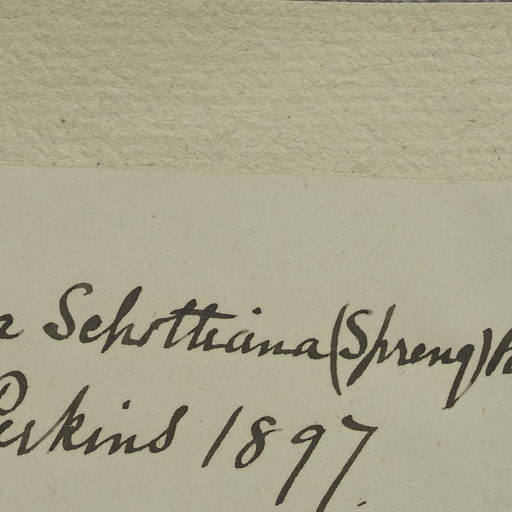 Schottiana (Spreng)
Perkins 1897.